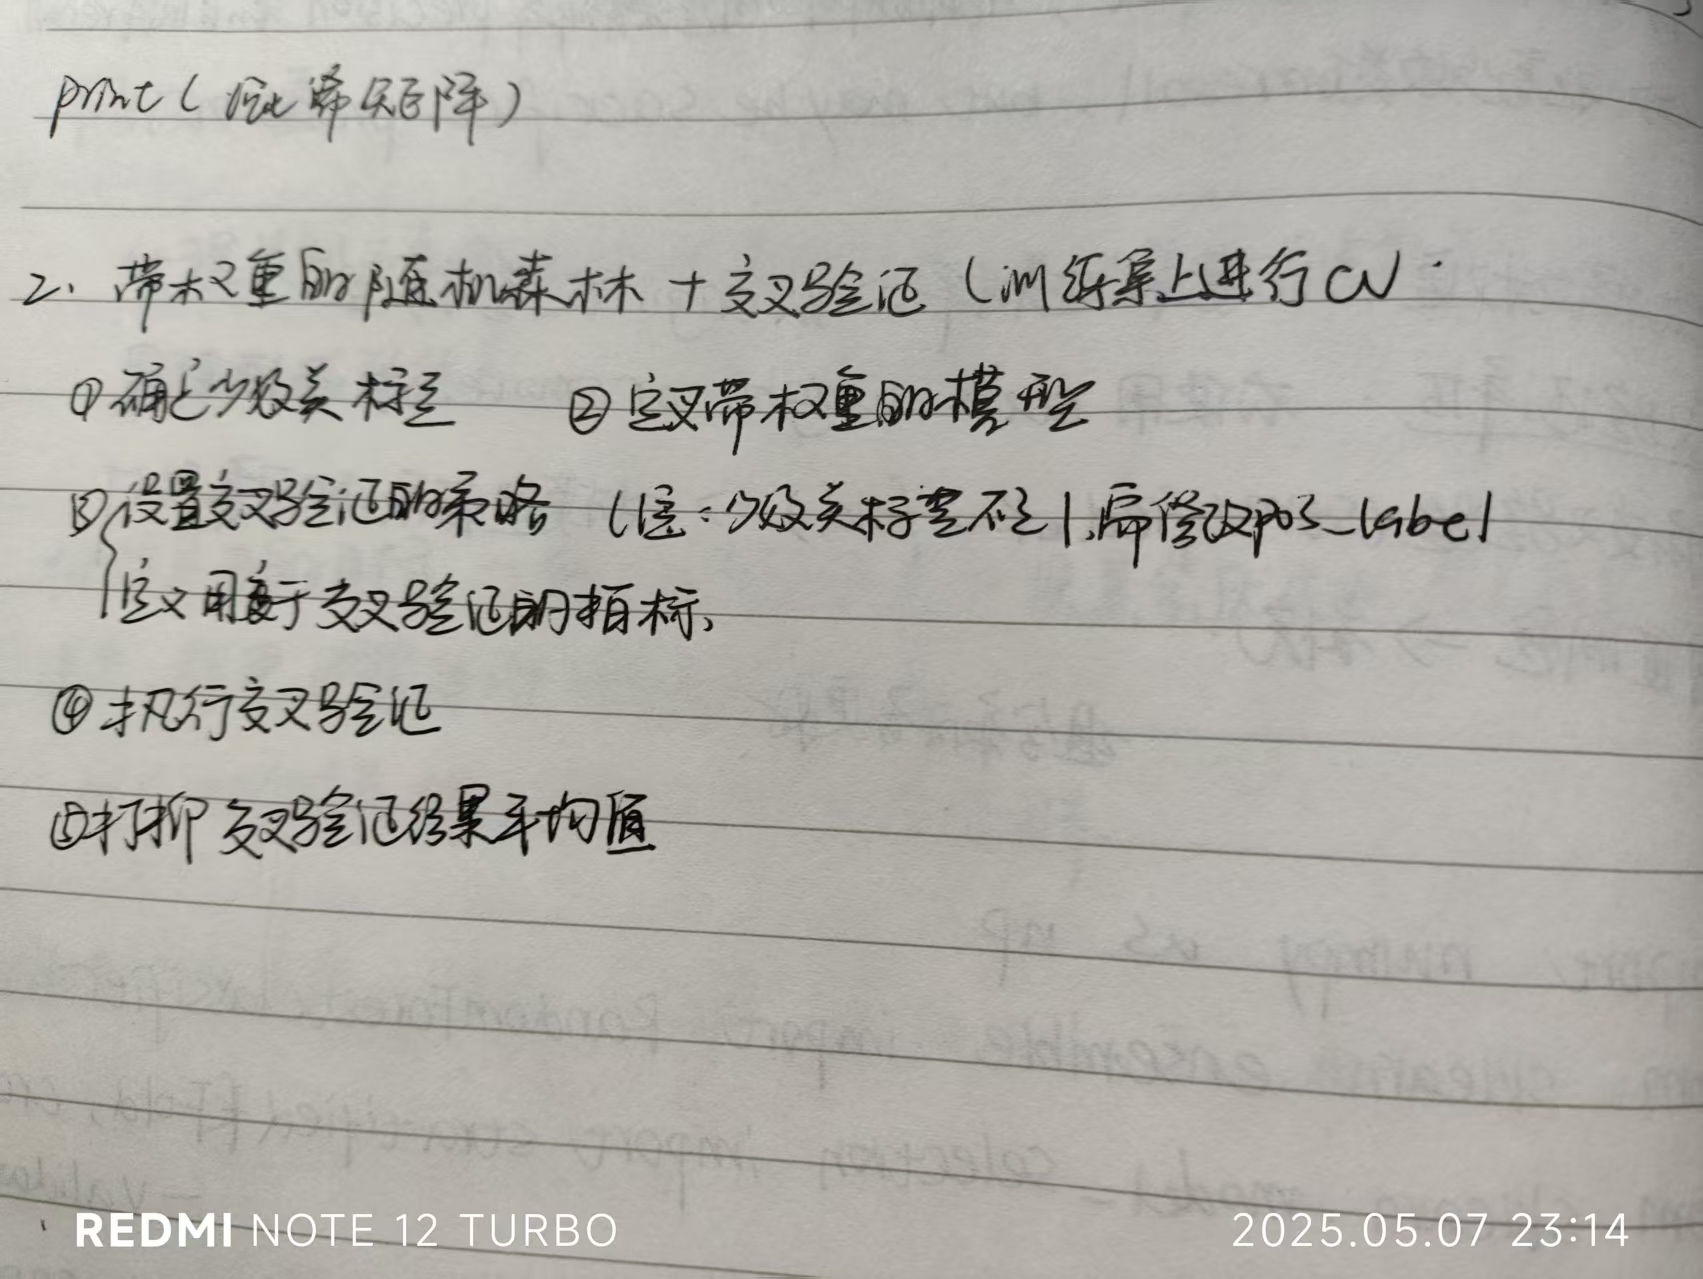 print(混淆矩阵)
2. 带权重的随机森林 + 交叉验证 (训练集上进行CV
① 确定少数类标签 ② 定义带权重的模型
③ 设置交叉验证的策略 (注:少数类标签不是1,需修改pos_label
定义用于交叉验证的指标、
④ 执行交叉验证
⑤ 打印交叉验证结果平均值
REDMI NOTE 12 TURBO
2025.05.07 23:14